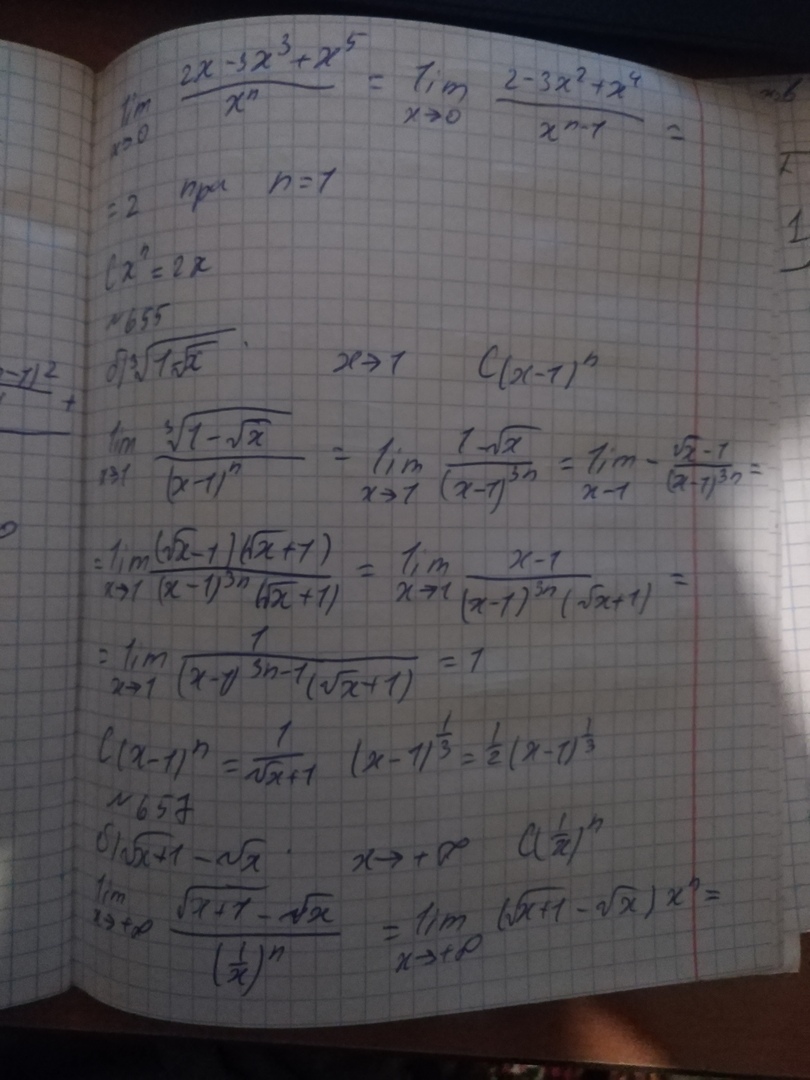 lim x→0 (2x - 3x³ + x⁵)/xⁿ = lim x→0 (2 - 3x² + x⁴)/xⁿ⁻¹ =
= 2 при n = 1
Cxⁿ = 2x
№655
б) ∛(1-√x) x→1 C(x-1)ⁿ
lim x→1 ∛(1-√x)/(x-1)ⁿ = lim x→1 (1-√x)/(x-1)³ⁿ = lim x-1 - (√x-1)/(x-1)³ⁿ =
= lim x→1 (√x-1)(√x+1)/((x-1)³ⁿ(√x+1)) = lim x→1 (x-1)/((x-1)³ⁿ(√x+1)) =
= lim x→1 1/((x-1)³ⁿ⁻¹(√x+1)) = 1
C(x-1)ⁿ = 1/(√x+1) (x-1)^(1/3) = 1/2 (x-1)^(1/3)
№657
б) √(x+1) - √x x→+∞ C(1/x)ⁿ
lim x→+∞ (√(x+1) - √x)/(1/x)ⁿ = lim x→+∞ (√(x+1) - √x) xⁿ =